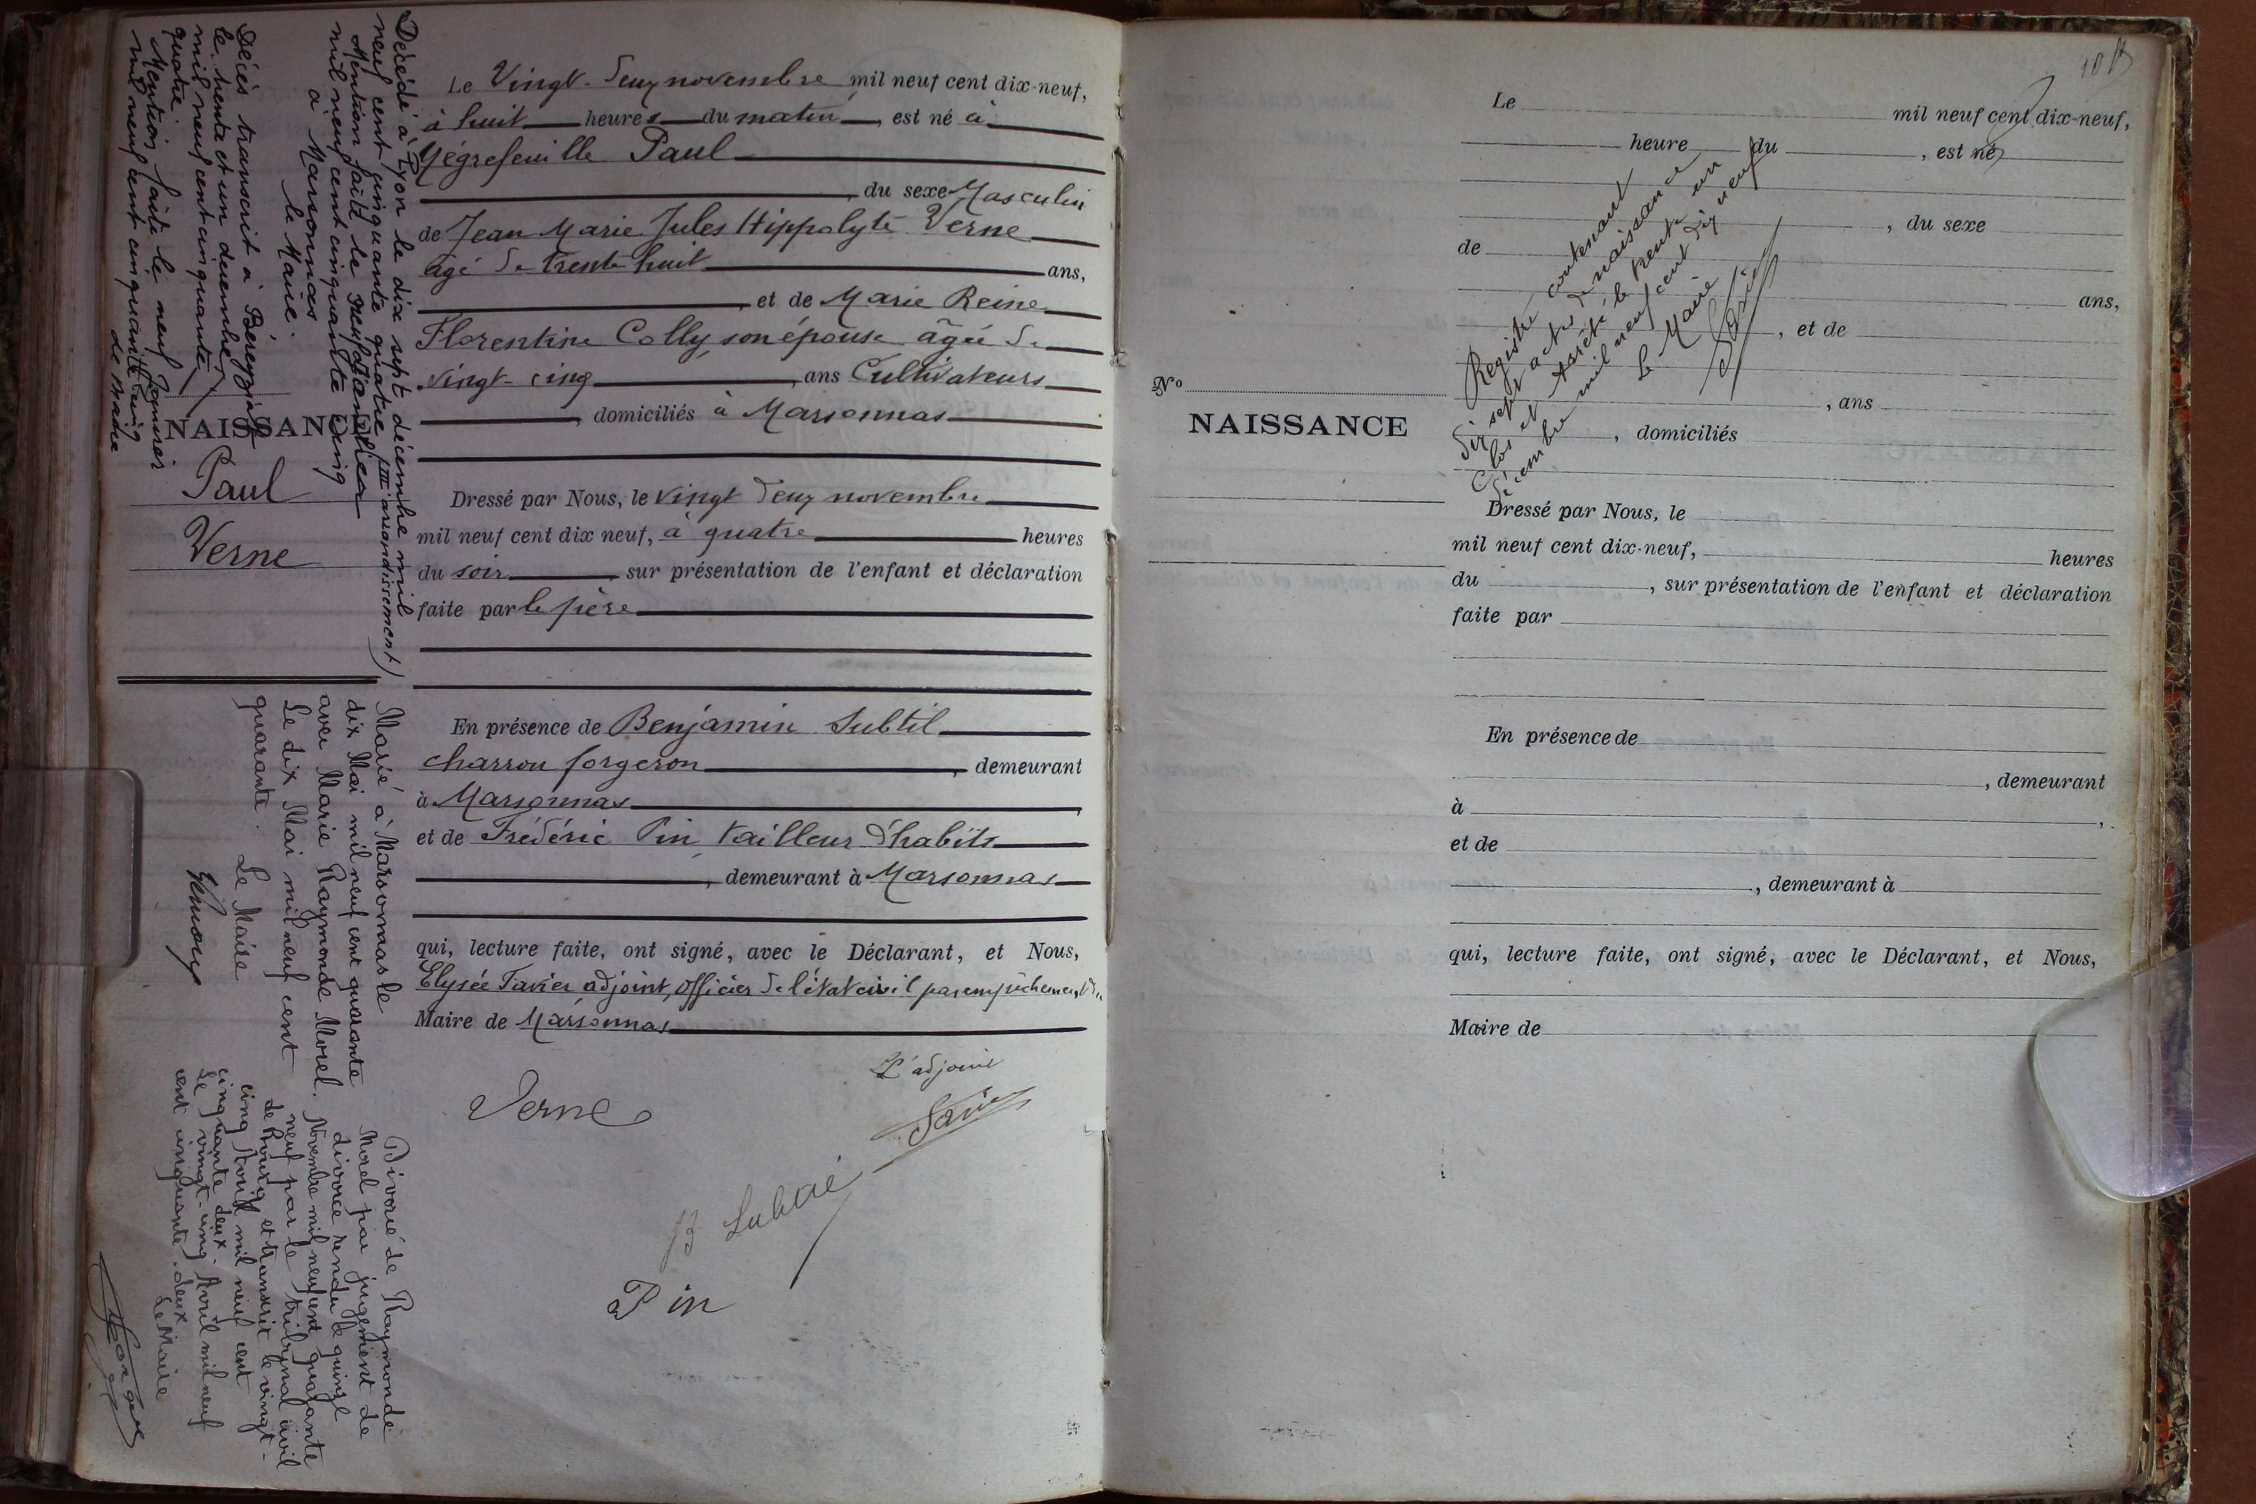 Le Vingt-deux novembre mil neuf cent dix-neuf,
à huit heures du matin, est né à
Négrefeuille Paul
, du sexe Masculin
de Jean Marie Jules Hippolyte Verne
âgé de trente huit ans,
et de Marie Reine
Florentine Colly, son épouse âgée de
vingt-cinq, ans Cultivateurs
, domiciliés à Marsonnas
Dressé par Nous, le vingt deux novembre
mil neuf cent dix neuf, à quatre heures
du soir, sur présentation de l'enfant et déclaration
faite par le père
En présence de Benjamin Subtil
charron forgeron, demeurant
à Marsonnas,
et de Frédéric Pin tailleur d'habits
, demeurant à Marsonnas
qui, lecture faite, ont signé, avec le Déclarant, et Nous,
Elysée Favier adjoint, officier de l'état civil par empêchement du
Maire de Marsonnas
L'adjoint
Verne
Favier
B Subtil
Pin
NAISSANCE
Paul
Verne
Décédé à Lyon le dix sept décembre mil
neuf cent cinquante quatre (III arrondissement)
Mention faite le neuf Janvier
mil neuf cent cinquante cinq
à Marsonnas
le Maire.
Décès transcrit à
le trente et un décembre
mil neuf cent cinquante
quatre.
Mention faite le neuf Janvier
mil neuf cent cinquante cinq
Marié à Marsonnas le
dix Mai mil neuf cent quarante
avec Marie Raymonde Morel.
Le dix Mai mil neuf cent
quarante.
Le Maire
Divorcé de Raymonde
Morel par jugement de
divorce rendu le quinze
Novembre mil neuf cent quarante
neuf par le tribunal civil
de Bourg et transcrit le vingt-
cinq Avril mil neuf cent
cinquante deux.
Le vingt-cinq Avril mil neuf
cent cinquante-deux
Le Maire
Le mil neuf cent dix-neuf,
heure du , est né
, du sexe
de
ans,
, et de
, ans
, domiciliés
Nº
NAISSANCE
Registre contenant
dix sept actes de naissance
Clos et Arrêté le trente un
décembre mil neuf cent dix neuf
Le Maire
Dressé par Nous, le
mil neuf cent dix-neuf, heures
du , sur présentation de l'enfant et déclaration
faite par
En présence de
, demeurant
à ,
et de
, demeurant à
qui, lecture faite, ont signé, avec le Déclarant, et Nous,
Maire de